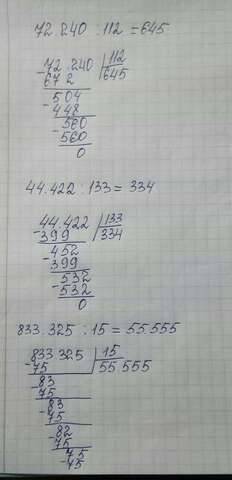 72.240 : 112 = 645
72.240 112
672 645
504
448
560
560
0
44.422 : 133 = 334
44.422 133
399 334
452
399
532
532
0
833.325 : 15 = 55.555
833 325 15
75 55 555
83
75
83
75
82
75
75
75